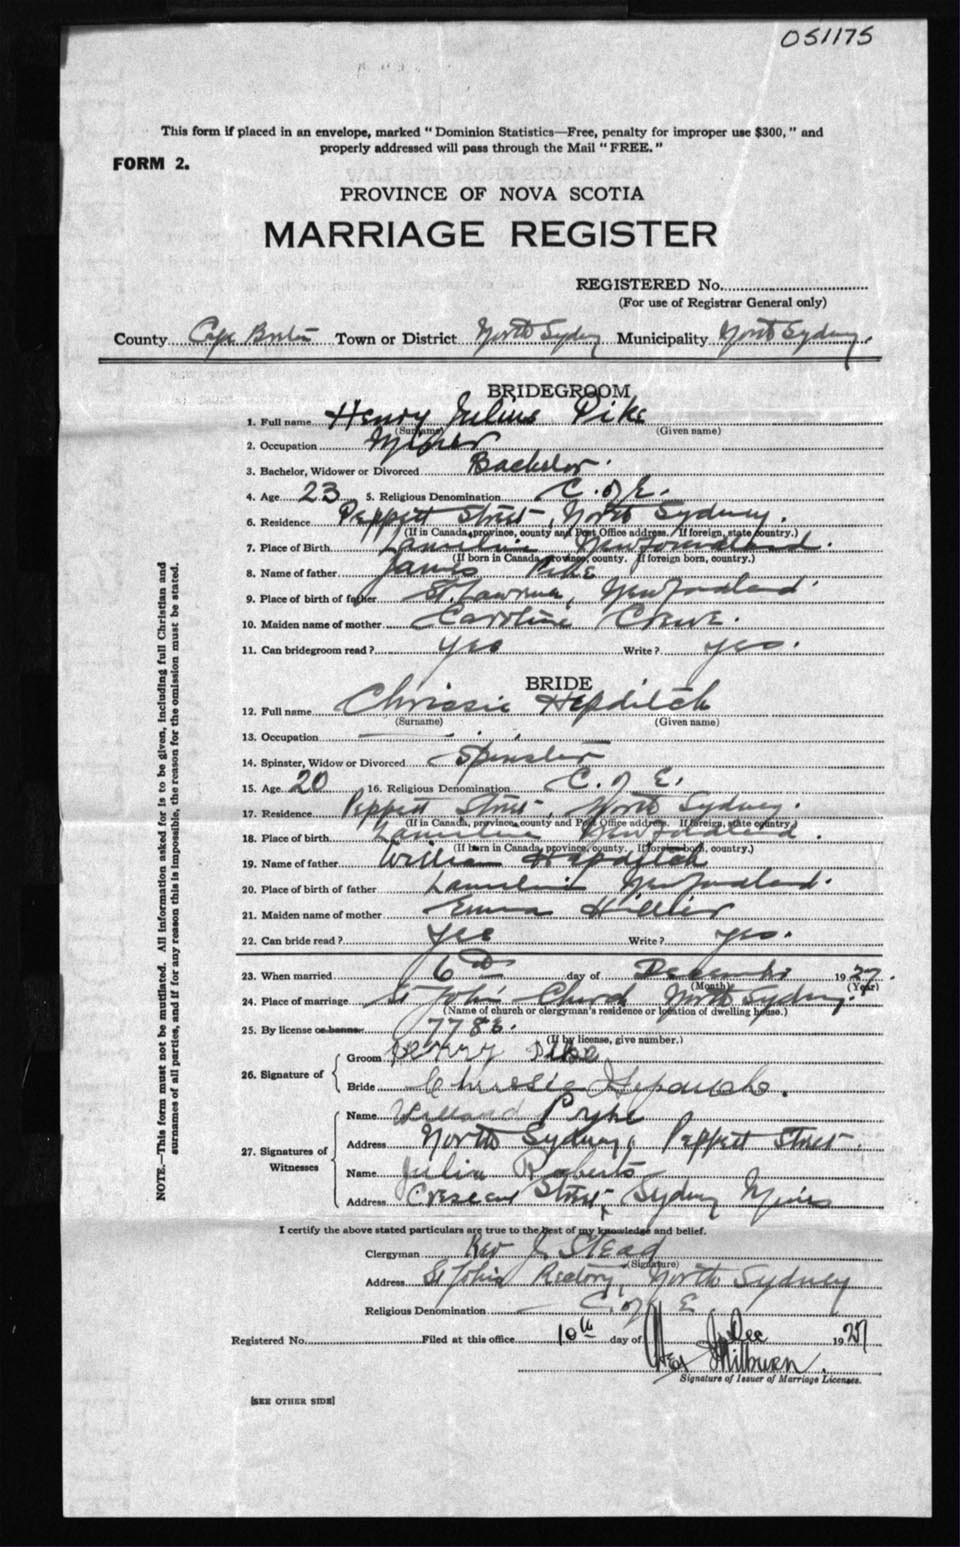 051175
This form if placed in an envelope, marked "Dominion Statistics—Free, penalty for improper use $300," and
properly addressed will pass through the Mail "FREE."
FORM 2.
PROVINCE OF NOVA SCOTIA
MARRIAGE REGISTER
REGISTERED No.
(For use of Registrar General only)
County Cape Breton Town or District North Sydney Municipality North Sydney
BRIDEGROOM
1. Full name Henry Julius Pike
(Surname) (Given name)
2. Occupation Miner
3. Bachelor, Widower or Divorced Bachelor
4. Age 23 5. Religious Denomination C. of E.
6. Residence Peppett Street, North Sydney.
(If in Canada, province, county and Post Office address. If foreign, state country.)
7. Place of Birth Lamaline Newfoundland.
(If born in Canada, province, county. If foreign born, country.)
8. Name of father James Pike
9. Place of birth of father St. Lawrence, Newfoundland
10. Maiden name of mother Caroline Crewe.
11. Can bridegroom read? yes Write? yes.
BRIDE
12. Full name Chrissie Hepditch
(Surname) (Given name)
13. Occupation
14. Spinster, Widow or Divorced Spinster
15. Age 20 16. Religious Denomination C. of E.
17. Residence Peppett Street, North Sydney.
(If in Canada, province, county and Post Office address. If foreign, state country.)
18. Place of birth Lamaline Newfoundland.
(If born in Canada, province, county. If foreign born, country.)
19. Name of father William Hepditch
20. Place of birth of father Lamaline Newfoundland.
21. Maiden name of mother Emma Hillier
22. Can bride read? yes Write? yes.
23. When married 6th day of December 1927.
(Month) (Year)
24. Place of marriage St John's Church North Sydney.
(Name of church or clergyman's residence or location of dwelling house.)
25. By license or banns 7786.
(If by license, give number.)
26. Signature of
Groom Henry Pike
Bride Chrissie Hepditch.
27. Signatures of Witnesses
Name Pike
Address North Sydney, Peppett Street
Name Julia Roberts
Address Crescent Street, Sydney Mines
I certify the above stated particulars are true to the best of my knowledge and belief.
Clergyman Rev J. Stead
(Signature)
Address St John's Rectory, North Sydney
Religious Denomination C. of E
Registered No. Filed at this office 10th day of Dec 1927
Milburn.
Signature of Issuer of Marriage Licenses.
[SEE OTHER SIDE]
NOTE.—This form must not be mutilated. All information asked for is to be given, including full Christian and
surnames of all parties, and if for any reason this is impossible, the reason for the omission must be stated.